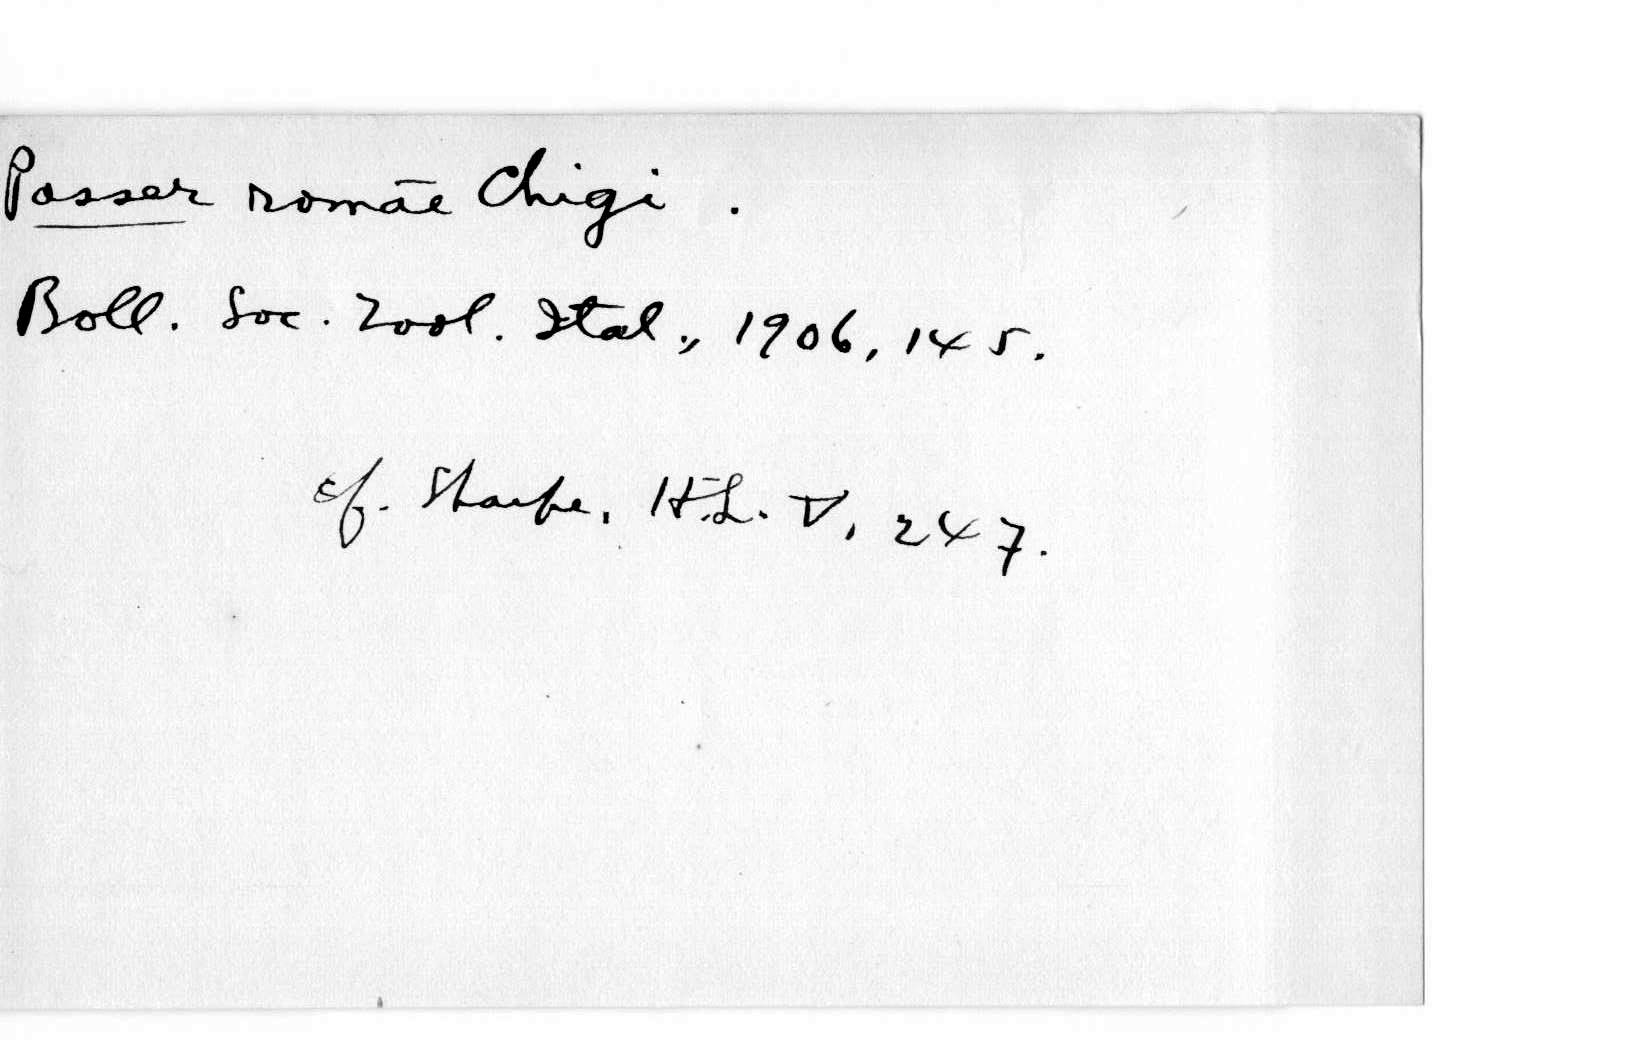 Passer romae Chigi.
Boll. Soc. Zool. Ital., 1906, 145.
cf. Sharpe, H.L. V, 247.